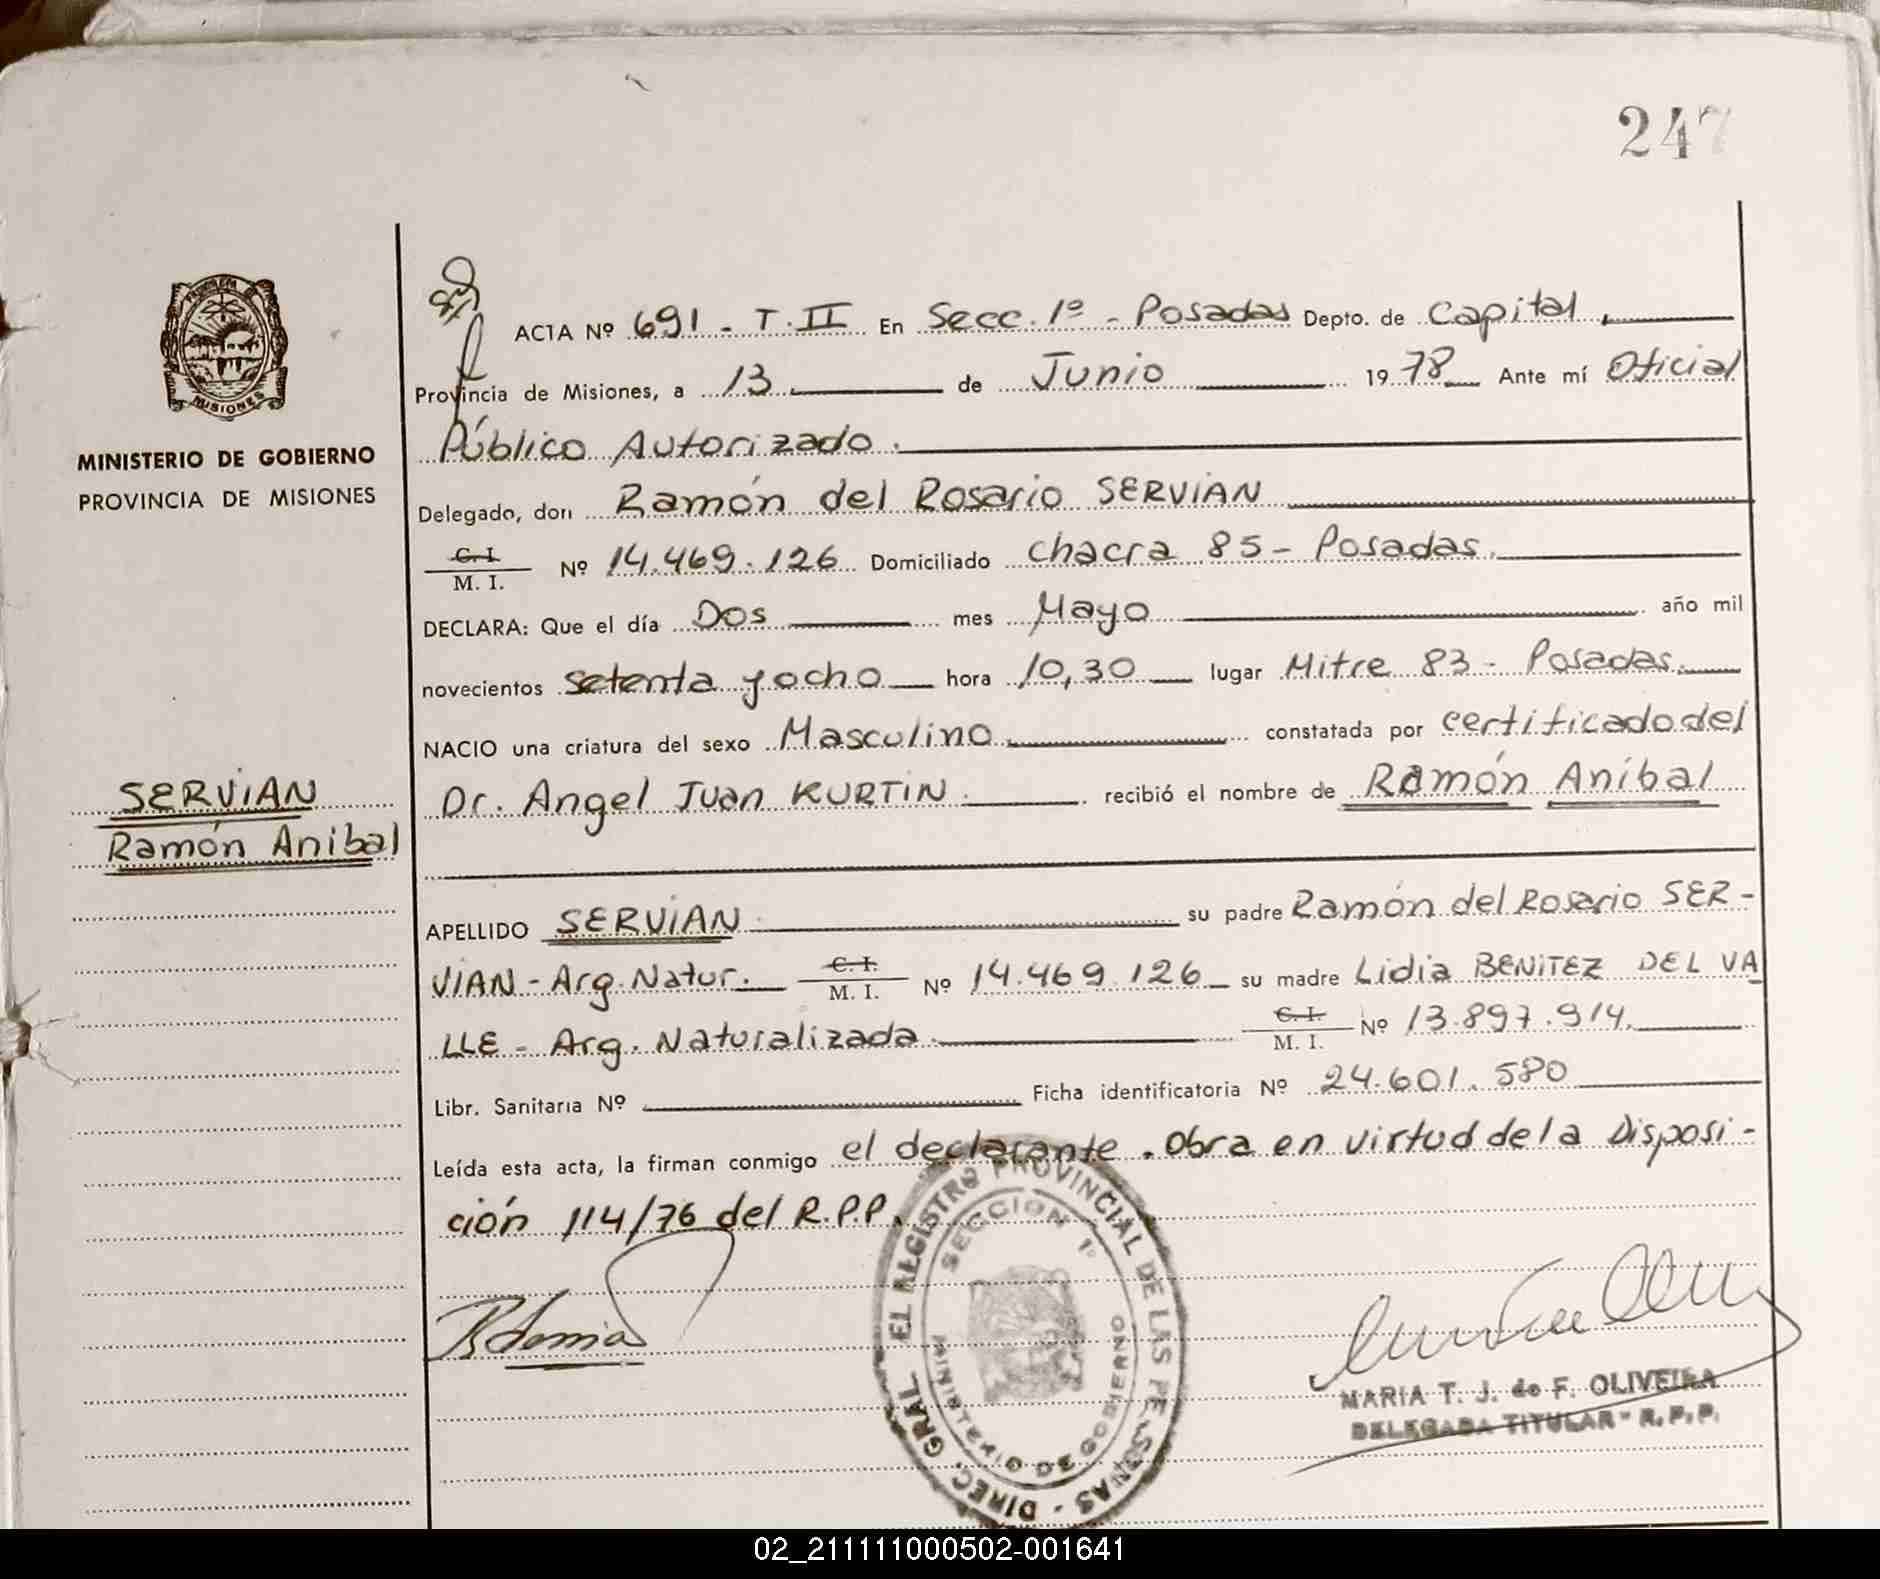 247
ACTA Nº 691 - T. II En Secc. 1º - Posadas Depto. de Capital,
Provincia de Misiones, a 13 de Junio 1978 Ante mí Oficial
Público Autorizado.
MINISTERIO DE GOBIERNO
PROVINCIA DE MISIONES
Delegado, don Ramón del Rosario SERVIAN
C. I.
M. I. Nº 14.469.126 Domiciliado Chacra 85 - Posadas.
DECLARA: Que el día Dos mes Mayo año mil
novecientos setenta y ocho hora 10,30 lugar Mitre 83 - Posadas.
NACIO una criatura del sexo Masculino. constatada por certificado del
Dr. Angel Juan KURTIN. recibió el nombre de Ramón Aníbal
SERVIAN
Ramón Anibal
APELLIDO SERVIAN. su padre Ramón del Rosario SER-
VIAN - Arg. Natur. C. I. M. I. Nº 14.469.126 su madre Lidia BENITEZ DEL VA
LLE - Arg. Naturalizada. C. I. M. I. Nº 13.897.914.
Libr. Sanitaria Nº Ficha identificatoria Nº 24.601.580
Leída esta acta, la firman conmigo el declarante. Obra en virtud de la Disposi-
ción 114/76 del R.P.P.
DIREC. GRAL. EL REGISTRO PROVINCIAL DE LAS PERSONAS -
SECCION 1º
MINISTERIO DE GOBIERNO
MISIONES
MARIA T. J. de F. OLIVEIRA
DELEGADA TITULAR - R. P. P.
02_211111000502-001641